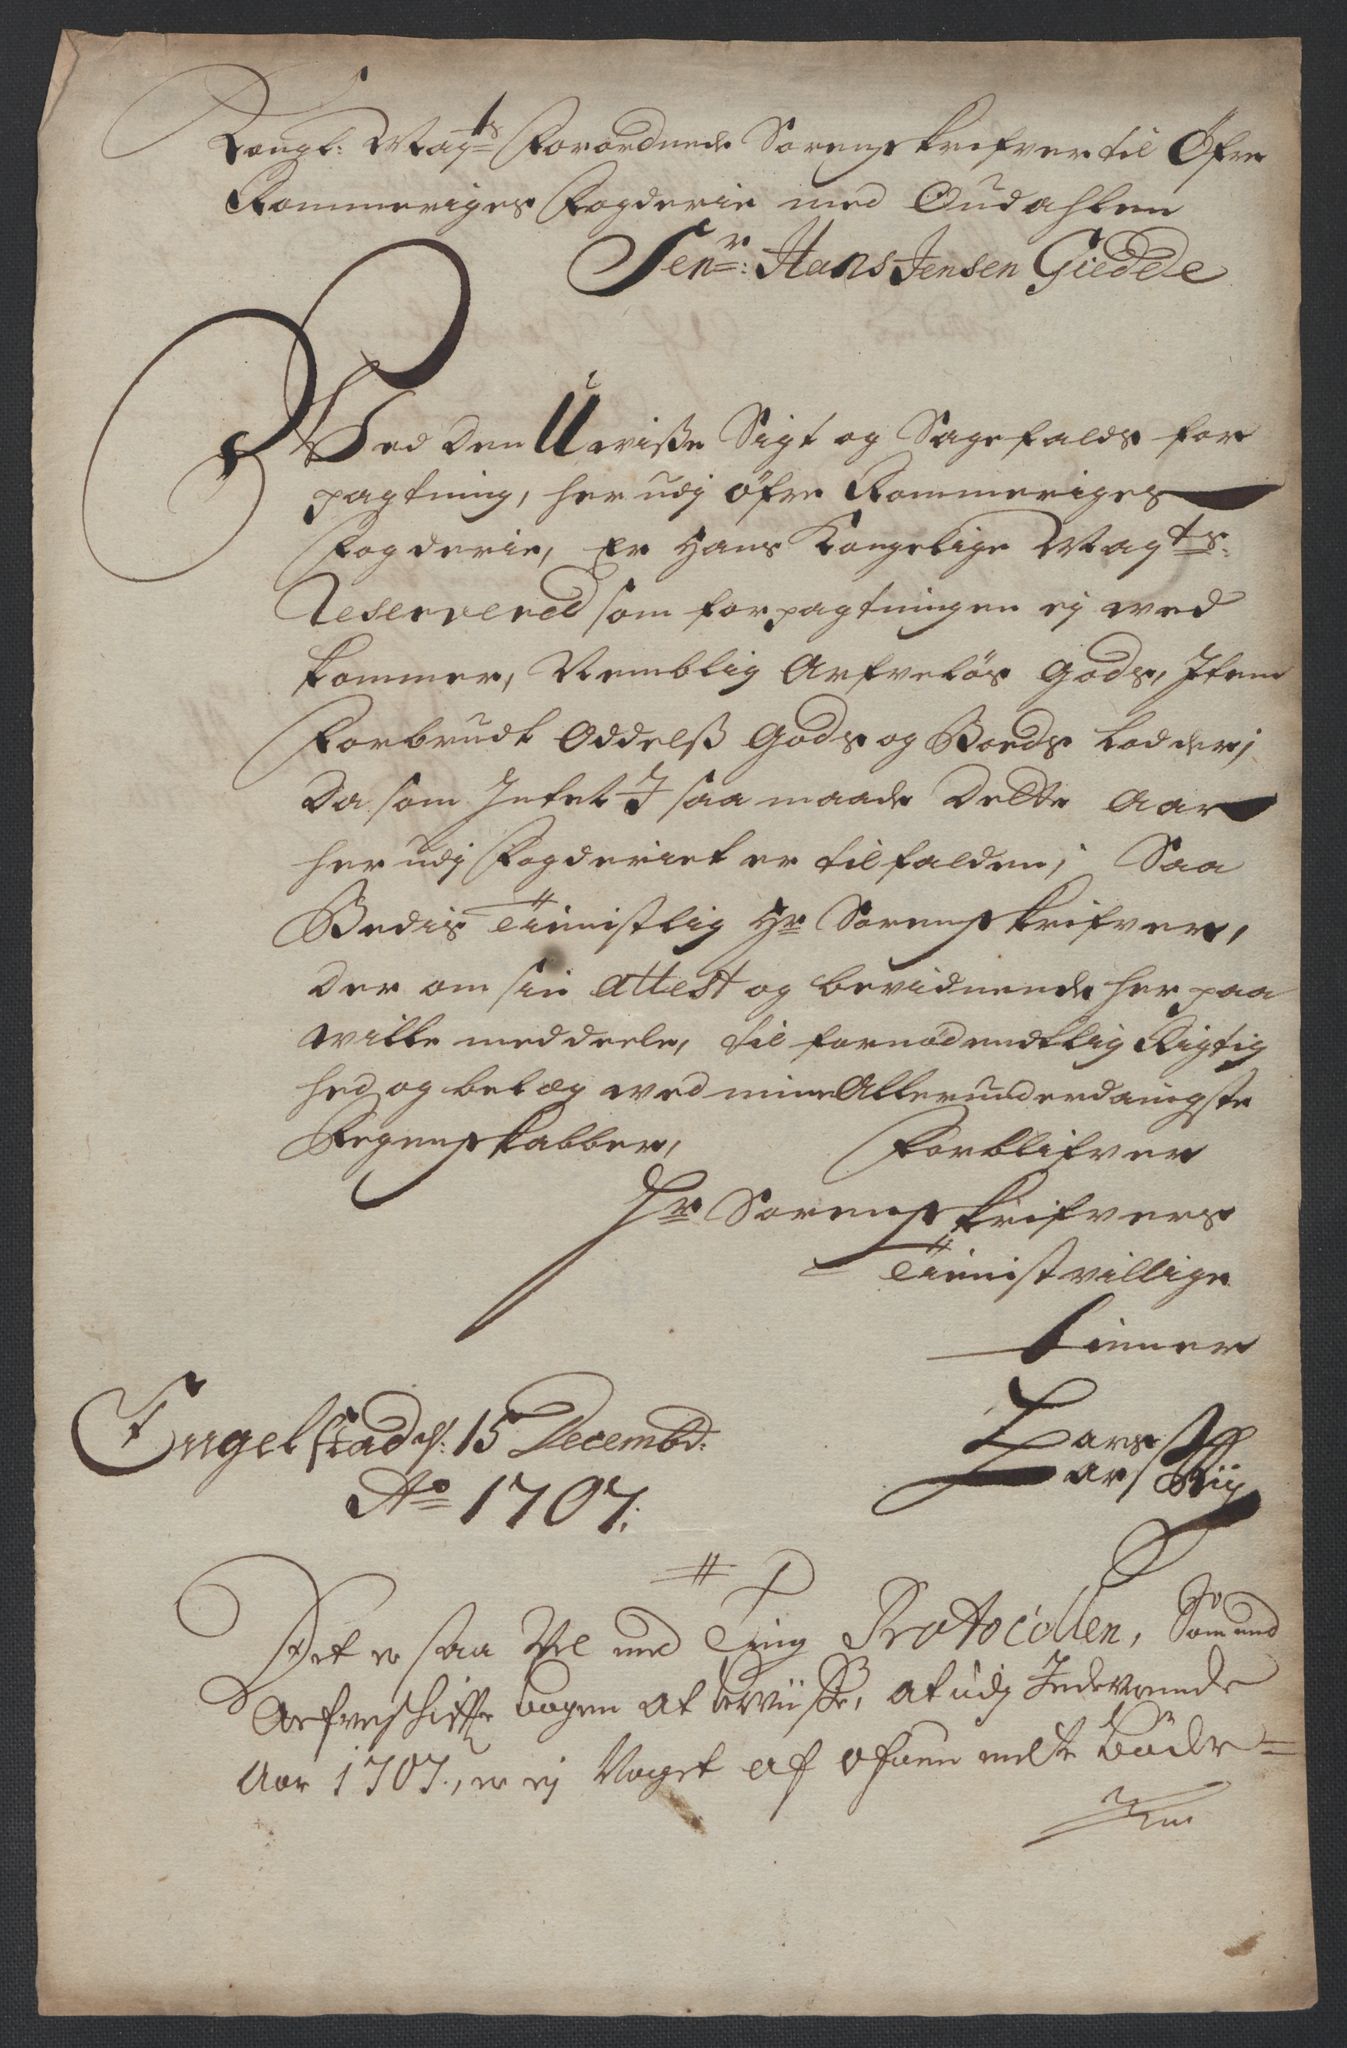 Kongl: Mayts Forordnede Sorenskrifver til Øfre
Rommeriges Fogderie med Oudahlen
Senr: Hans Jensen Giedde
Ved den Uvisse Sigt og Sagefalds for
pagtning, her udj Øfre Rommeriges
Fogderie, Er Hans Kongelige Mayts:
Reservered som forpagtningen ej ved
kommer, Nemblig Arfveløs Gods, Item
Forbrudt Oddelss Gods og Boeds lodder;
Da som Intet I saa maade Dette Aar
her udj Fogderiet er tilfalden; Saa
Bedis Tienistlig Hr Sorenskrifver,
Der om sin attest og bevidnende her paa
Ville meddeele, til fornødendtlig Rigtig
hed og belæg ved mine Allerunderdanigste
Regenskabber, Forblifver
Hr Sorenskrifvers
Tienistvillige
tiener
Engelstad d: 15 Decembr:
Ao 1707:
Lars
Det er saa Vel med Ting Protocollen, Som med
Arfveschiffte bogen at beviisse, at udj Indeværende
Aar 1707, er ej Noget af ofven melte bøder